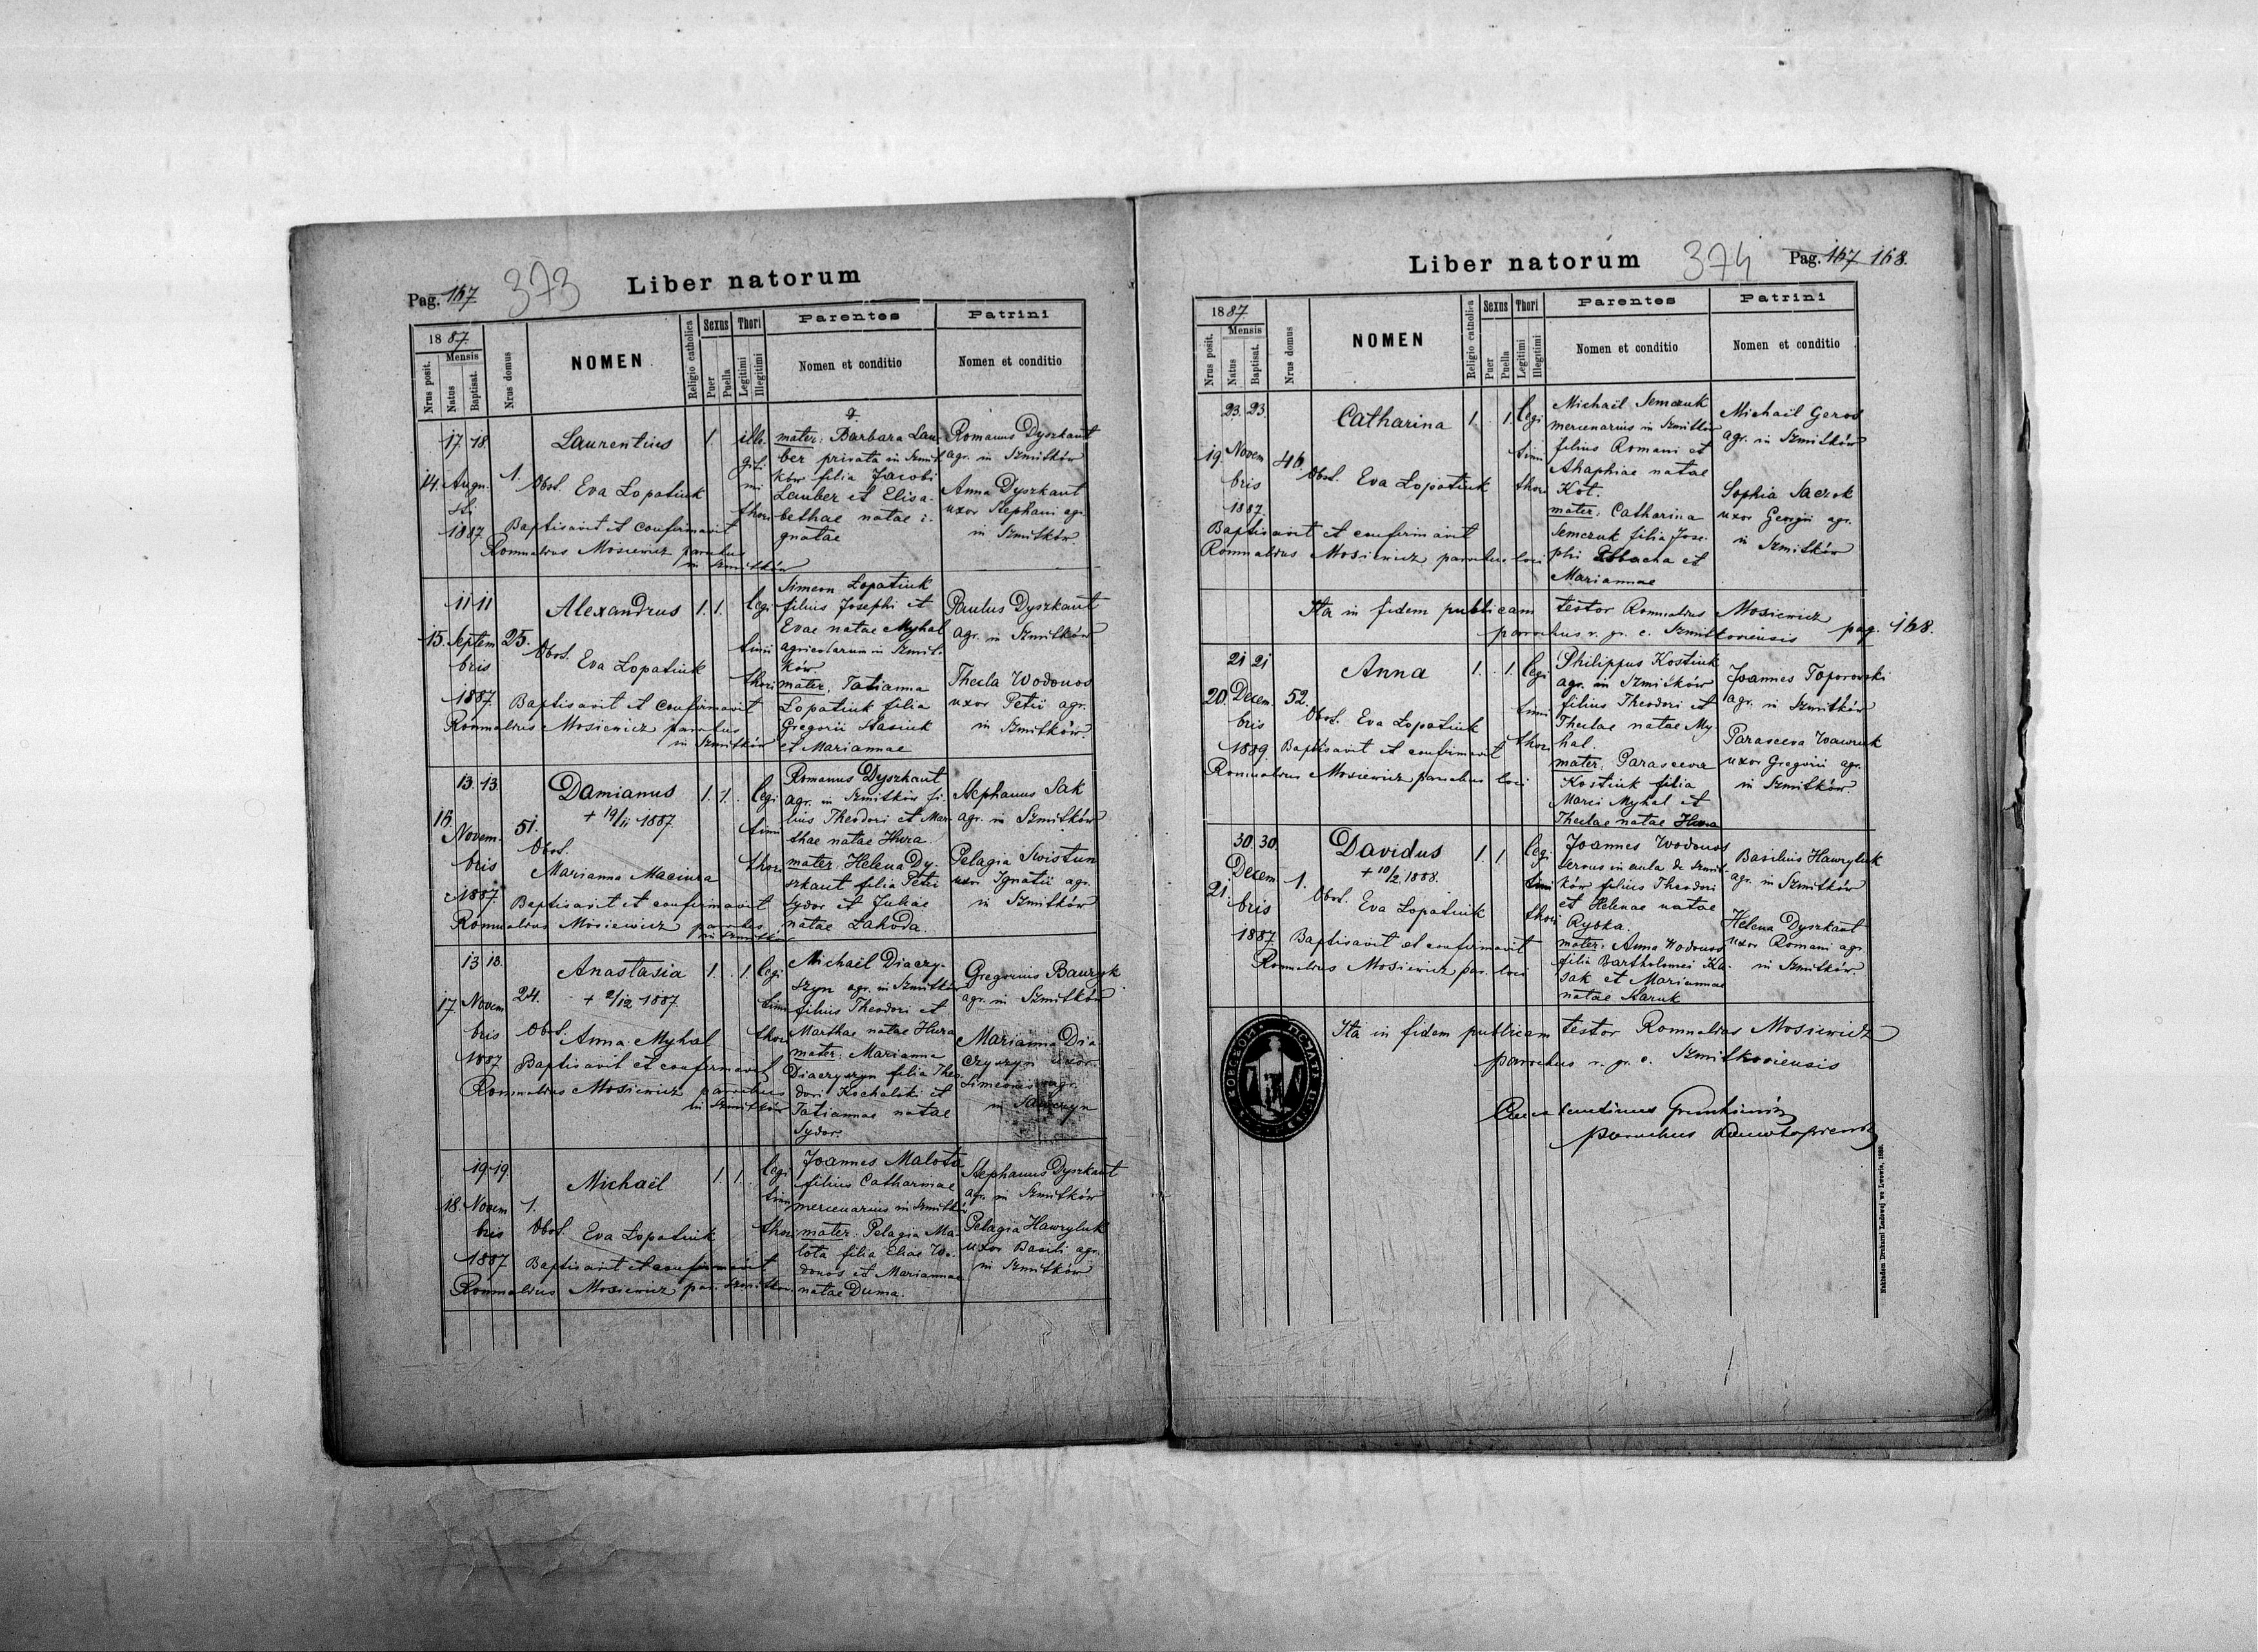 Pag. 167
373
Liber natorum
1887.
Nrus posit.
Mensis
Natus
Baptisat.
Nrus domus
NOMEN
Religio catholica
Sexus
Puer
Puella
Thori
Legitimi
Illegitimi
Parentes
Nomen et conditio
Patrini
Nomen et conditio
17 18
14. Augu.
sti
1887
1.
Laurentius
Obst. Eva Lopatiuk
Baptisavit et confirmavit
Romualdus Mosiewicz parochus
in Szmitków
1.
ille
giti
mi
thori
mater: Barbara Lau-
ber privata in Szmit
ków filia Jacobi
Lauber et Elisa-
bethae natae i-
gnotae
Romanus Dyszkant
agr. in Szmitków
Anna Dyszkant
uxor Stephani agr.
in Szmitków.
11 11
15. Septem
bris
1887
25.
Alexandrus
Obst. Eva Lopatiuk
Baptisavit et confirmavit
Romualdus Mosiewicz parochus
in Szmitków
1. 1.
legi
timi
thori
Simeon Lopatiuk
filius Josephi et
Evae natae Myhal
agricolarum in Szmit-
ków
mater. Tatianna
Lopatiuk filia
Gregorii Stasiuk
et Mariannae
Paulus Dyszkant
agr. in Szmitków
Thecla Wodonos
uxor Petii agr.
in Szmitków.
13. 13.
16. Novem-
bris
1887
51.
Damianus
+ 19/11 1887.
Obst.
Marianna Maciura
Baptisavit et confirmavit
Romualdus Mosiewicz parochus
in Szmitków
1. 1.
legi
timi
thori
Romanus Dyszkant
agr. in Szmitków fi-
lius Theodori et Mar-
thae natae Hura.
mater: Helena Dy-
szkant filia Petri
Sydor et Juliae
natae Lahoda.
Stephanus Sak
agr. in Szmitków
Pelagia Swistun
uxor Ignatii agr.
in Szmitków
13 18.
17. Novem
bris
1887
24.
Anastasia
+ 2/12 1887.
Obst. Anna Myhal
Baptisavit et confirmavit
Romualdus Mosiewicz parochus
in Szmitków
1. 1
legi
timi
thori
Michaël Diaczy-
szyn agr. in Szmitków
filius Theodori et
Marthae natae Hura
mater: Marianna
Diaczyszyn filia Theo-
dori Kochalski et
Tatiannae natae
Sydor.
Gregorius Bauryk
agr. in Szmitków
Marianna Dia
czyszyn uxor
Simeonis agr.
in
19 19.
18. Novem
bris
1887
1.
Michaël
Obst. Eva Lopatiuk
Baptisavit et confirmavit
Romualdus Mosiewicz par. Szmitkow.
1. 1.
legi
timi
thori
Joannes Malota
filius Catharinae
mercenarius in Szmitków
mater. Pelagia Ma-
lota filia Eliae Wo-
donos et Mariannae
natae Duma.
Stephanus Dyszkant
agr. in Szmitków
Pelagia Hawryluk
uxor Basili agr.
in Szmitków
Liber natorum
374
Pag. 167 168.
1887.
Nrus posit.
Mensis
Natus
Baptisat.
Nrus domus
NOMEN
Religio catholica
Sexus
Puer
Puella
Thori
Legitimi
Illegitimi
Parentes
Nomen et conditio
Patrini
Nomen et conditio
23. 23.
19. Novem
bris
1887
46.
Catharina
Obst. Eva Lopatiuk
Baptisavit et confirmavit
Romualdus Mosiewicz parochus loci
1. 1.
legi
timi
thori
Michaël Semczuk
mercenarius in Szmitków
filius Romani et
Ahaphiae natae
Kot.
mater: Catharina
Semczuk filia Jose-
phi et
Mariannae
Michaël Gerod
agr. in Szmitków
Sophia Saczok
uxor Georgii agr.
in Szmitków
Ita in fidem publicam testor Romualdus Mosiewicz
parochus r. gr. c. Szmitkoviensis pag. 168.
21 21
20. Decem.
bris
1889.
52.
Anna
Obst. Eva Lopatiuk
Baptisavit et confirmavit
Romualdus Mosiewicz parochus loci
1. 1.
legi
timi
thori
Philippus Kostiuk
agr. in Szmitków
filius Theodori et
Theclae natae My
hal.
mater. Parasceva
Kostiuk filia
Marci Myhal et
Theclae natae Hura
Joannes Toporowski
agr. in Szmitków
Parasceva Wawruk
uxor Gregorii agr.
in Szmitków.
30. 30.
21. Decem
bris
1887
1.
Davidus
+ 10/2 1888.
Obst. Eva Lopatiuk
Baptisavit et confirmavit
Romualdus Mosiewicz par. loci
1. 1.
legi
timi
thori
Joannes Wodonos
servus in aula de Szmit-
ków filius Theodori
et Helenae natae
Rybka.
mater: Anna Wodonos
filia Bartholomei Ka-
sak et Mariannae
natae Karuk
Basilius Hawryluk
agr. in Szmitków
Helena Dyszkant
uxor Romani agr.
in Szmitków.
Ita in fidem publicam testor Romualdus Mosiewicz
parochus r. gr. c. Szmitkoviensis
parochus
Nakładem Drukarni Ludowej we Lwowie, 1885.